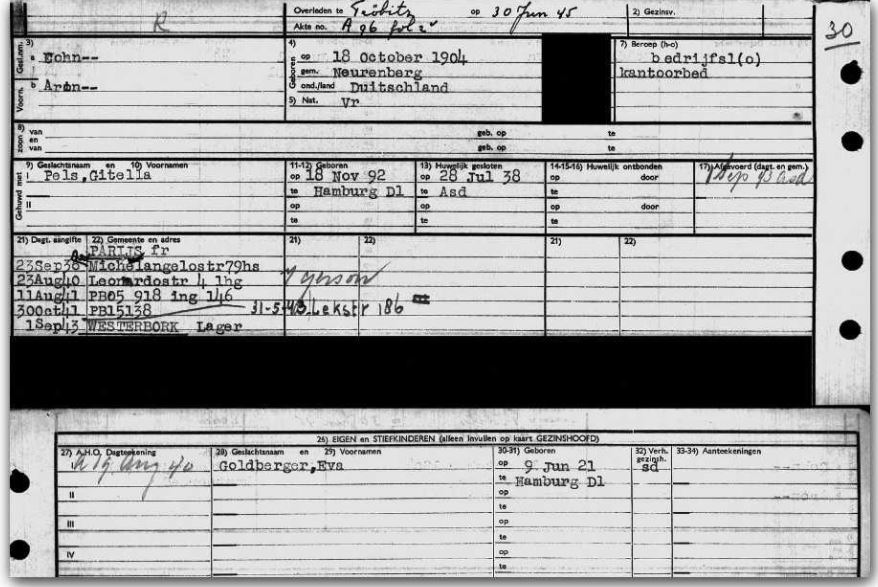 Overleden te Tröbitz op 30 Jun 45
Akte no. A 96 fol 2
2) Gezinsv.
R
30
3) Gesl.nm.
a Cohn--
Voorn.
b Aron--
4) Geboren
op 18 October 1904
gem. Neurenberg
ond./land Duitschland
5) Nat. Vr
7) Beroep (h-o)
bedrijfsl(o)
kantoorbed
zoon 8)
van geb. op te
en
van geb. op te
Gehuwd met
9) Geslachtsnaam en 10) Voornamen
I Pels,Gitella
II
11-12) Geboren
op 18 Nov 92
te Hamburg Dl
op
te
13) Huwelijk gesloten
op 28 Jul 38
te Asd
op
te
14-15-16) Huwelijk ontbonden
op door
te
op door
te
17) Afgevoerd (dagt. en gem.)
1 Sep 43 asd
21) Dagt. aangifte 22) Gemeente en adres 21) 22) 21) 22)
PARIJS fr
23Sep38 Michelangelostr79hs
23Aug40 Leonardostr 4 1hg
11Aug41 PB05 918 ing 146
30Oct41 PB15138 31-5-43 Lekstr 186
1Sep43 WESTERBORK Lager
26) EIGEN en STIEFKINDEREN (alleen invullen op kaart GEZINSHOOFD)
27) A.H.O. Dagteekening
I 19 Aug 40
II
III
IV
28) Geslachtsnaam en 29) Voornamen
Goldberger,Eva
30-31) Geboren
op 9 Jun 21
te Hamburg Dl
op
te
op
te
op
te
32) Verh. gezinsh.
sd
33-34) Aanteekeningen